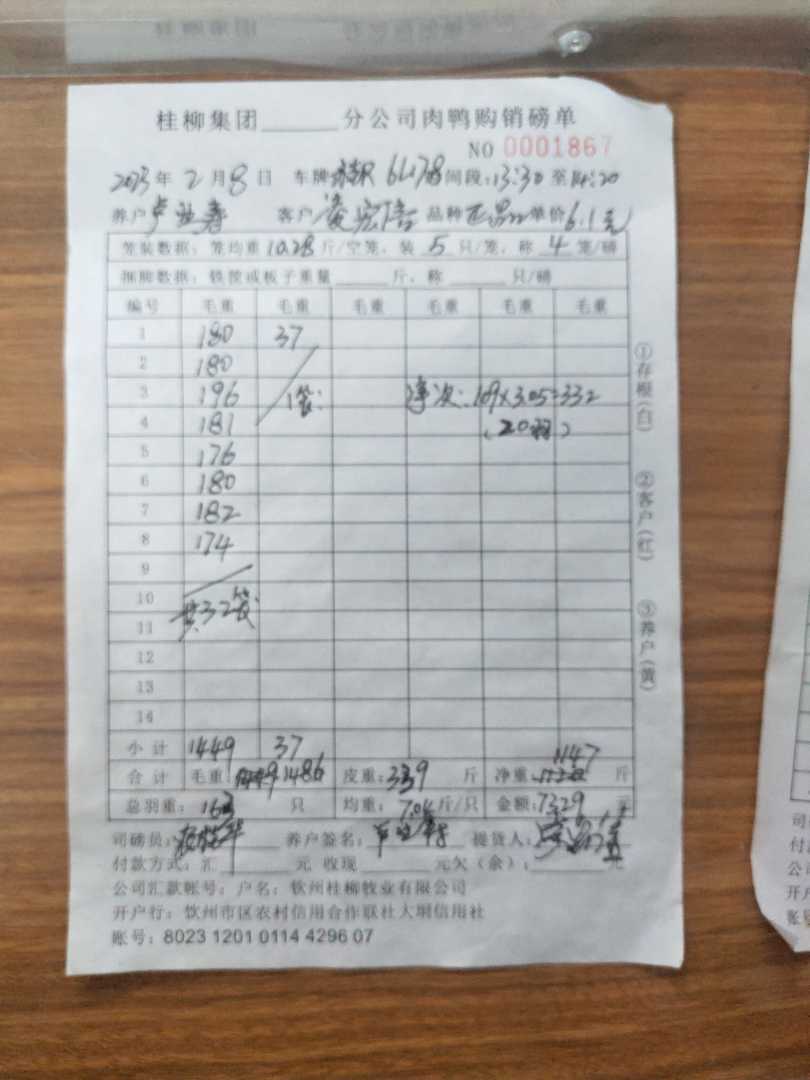 桂柳集团______分公司肉鸭购销磅单
NO 0001867
2023年2月8日 车牌 61178 时间段:13:30至14:20
养户 卢 春 客户 凌宏 品种 正品 单价6.1元
笼装数据:笼均重10.28斤/空笼,装5只/笼,称4笼/磅
捆脚数据:铁筐或板子重量______斤,称______只/磅
编号 毛重 毛重 毛重 毛重 毛重 毛重
1 180 37
2 180
3 196 1笼: 净次:109×3.05=332
4 181 (20羽)
5 176
6 180
7 182
8 174
9
10 共32笼
11
12
13
14
小计 1449 37
合计 毛重: 1486 皮重:339斤 净重:1147斤
总羽重:163只 均重:7.04斤/只 金额:7329元
司磅员: 养户签名: 提货人:
付款方式:汇______元 收现______元欠(余):______元
公司汇款帐号:户名:钦州桂柳牧业有限公司
开户行:钦州市区农村信用合作联社大垌信用社
账号:8023 1201 0114 4296 07
①存根(白)
②客户(红)
③养户(黄)